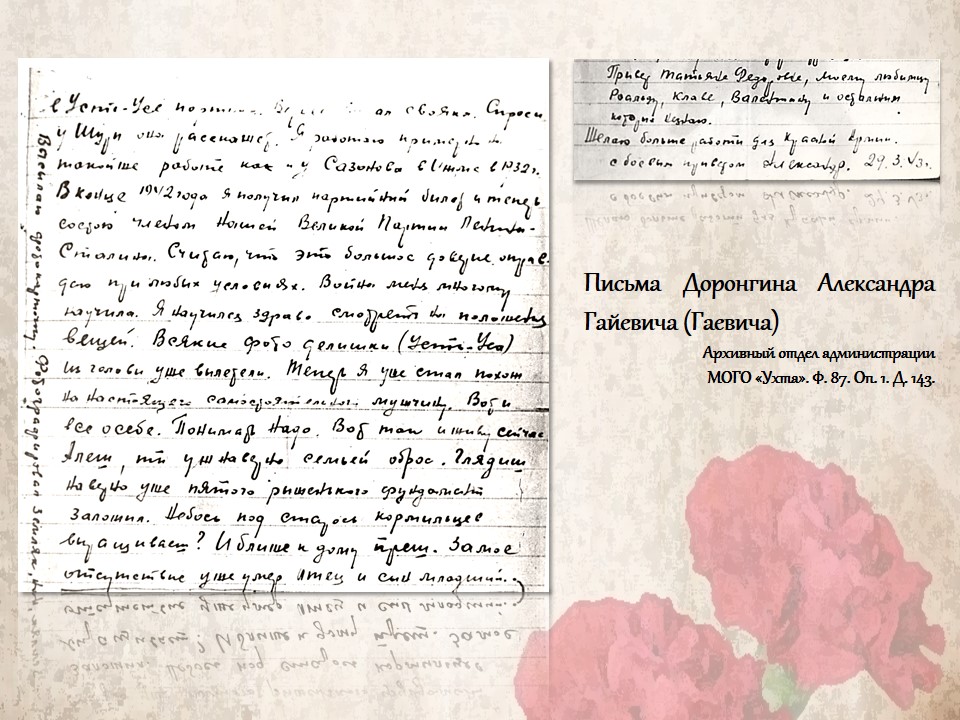 в Усть-Усе
у Шуры она расскашет. Я работаю примерно на
такойше работе как и у Сазонова в Ижме в 1932 г.
В конце 1942 года я получил партийний билет и теперь
состою членом Нашей Великой Партии Ленина-
Сталина. Считаю, что это большое доверие оправ
даю при любых условиях. Война меня многому
научила. Я научился здраво смотреть на положения
вещей. Всякие фото делишки (Усть-Уса)
из голови уше вилетели. Теперь я уше стал похож
на настоящего самостоятельного мушчину. Вот и
все о себе. Понимать надо. Вот так и живу сейчас
Алеш, ти уш навеуно семьей оброс. Глядиш
навеуно уше пятого ришенького фундамент
залошил. Небось под старось кормильцев
виращиваеш? И блише к дому преш. За мое
отсутствие уше умер отец и син младший.
Висилаю фотокарточку. Фотографировал земляк,
Привет Татьяне Федоровне, моему любимцу
Роальду, Клаве, Валентину и остальним
которих незнаю.
Шелаю больше работи для Красной Армии.
с боевим приветом Александр. 29.3.43 г.
Письма Доронгина Александра
Гайевича (Гаевича)
Архивный отдел администрации
МОГО «Ухта». Ф. 87. Оп. 1. Д. 143.